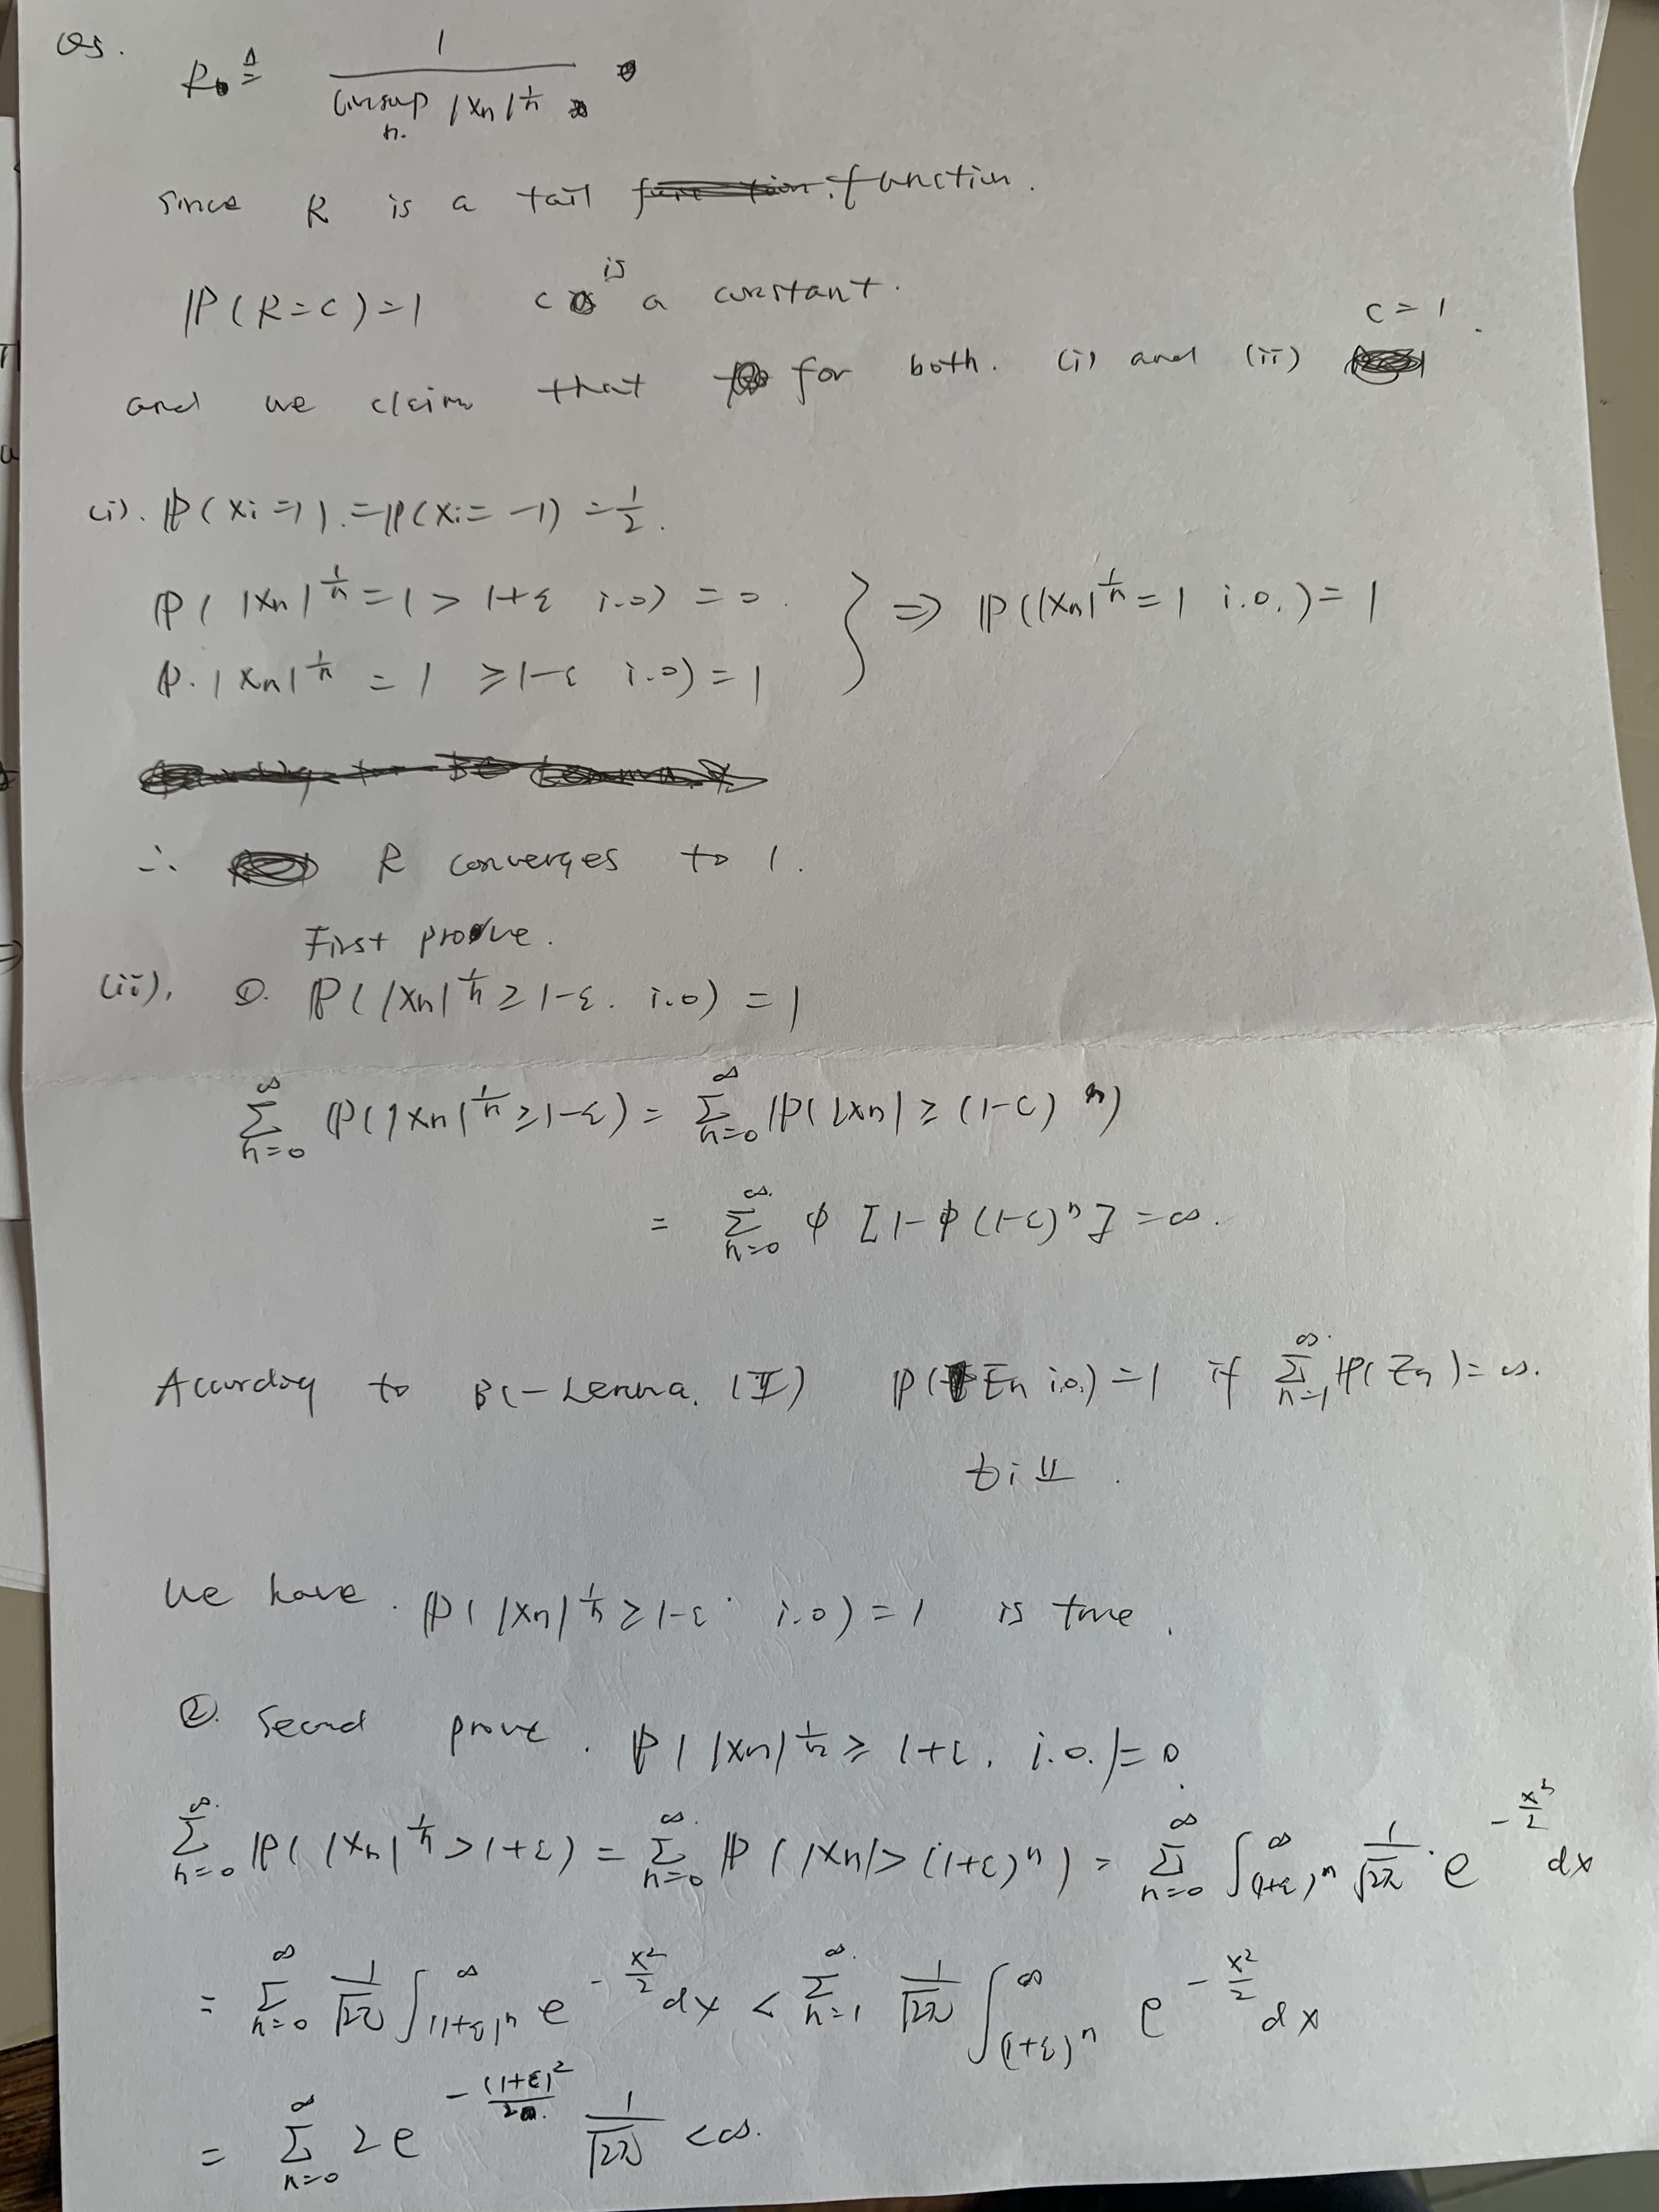 Q5.
R ≜ 1 / (limsup_n |Xn|^{1/n})
Since R is a tail function.
P(R=c)=1 c is a constant.
and we claim that for both. (i) and (ii) c=1.
(i). P(Xi=1).=P(Xi=-1)=1/2.
P(|Xn|^{1/n}=1>1+ε i.o)=0.
P.|Xn|^{1/n}=1 ≥1-ε i.o)=1
} ⇒ P(|Xn|^{1/n}=1 i.o.)=1
∴ R converges to 1.
First prove.
(ii). ①. P(|Xn|^{1/n}≥1-ε. i.o)=1
∑_{n=0}^{∞} P(|Xn|^{1/n}≥1-ε)=∑_{n=0}^{∞} P(|Xn|≥(1-ε)^n)
=∑_{n=0}^{∞} φ[1-φ(1-ε)^n]=∞.
According to BC-Lemma.(II) P(En i.o.)=1 if ∑_{n=1}^{∞} P(En)=∞.
We have. P(|Xn|^{1/n}≥1-ε. i.o)=1 is true.
②. Second prove. P(|Xn|^{1/n}≥1+ε. i.o.)=0.
∑_{n=0}^{∞} P(|Xn|^{1/n}>1+ε)=∑_{n=0}^{∞} P(|Xn|>(1+ε)^n)=∑_{n=0}^{∞} ∫_{(1+ε)^n}^{∞} 1/√2π · e^{-x²/2} dx
=∑_{n=0}^{∞} 1/√2π ∫_{(1+ε)^n}^{∞} e^{-x²/2} dx < ∑_{n=1}^{∞} 1/√2π ∫_{(1+ε)^n}^{∞} e^{-x²/2} dx
=∑_{n=0}^{∞} 2e^{-(1+ε)²/2} 1/√2π <∞.